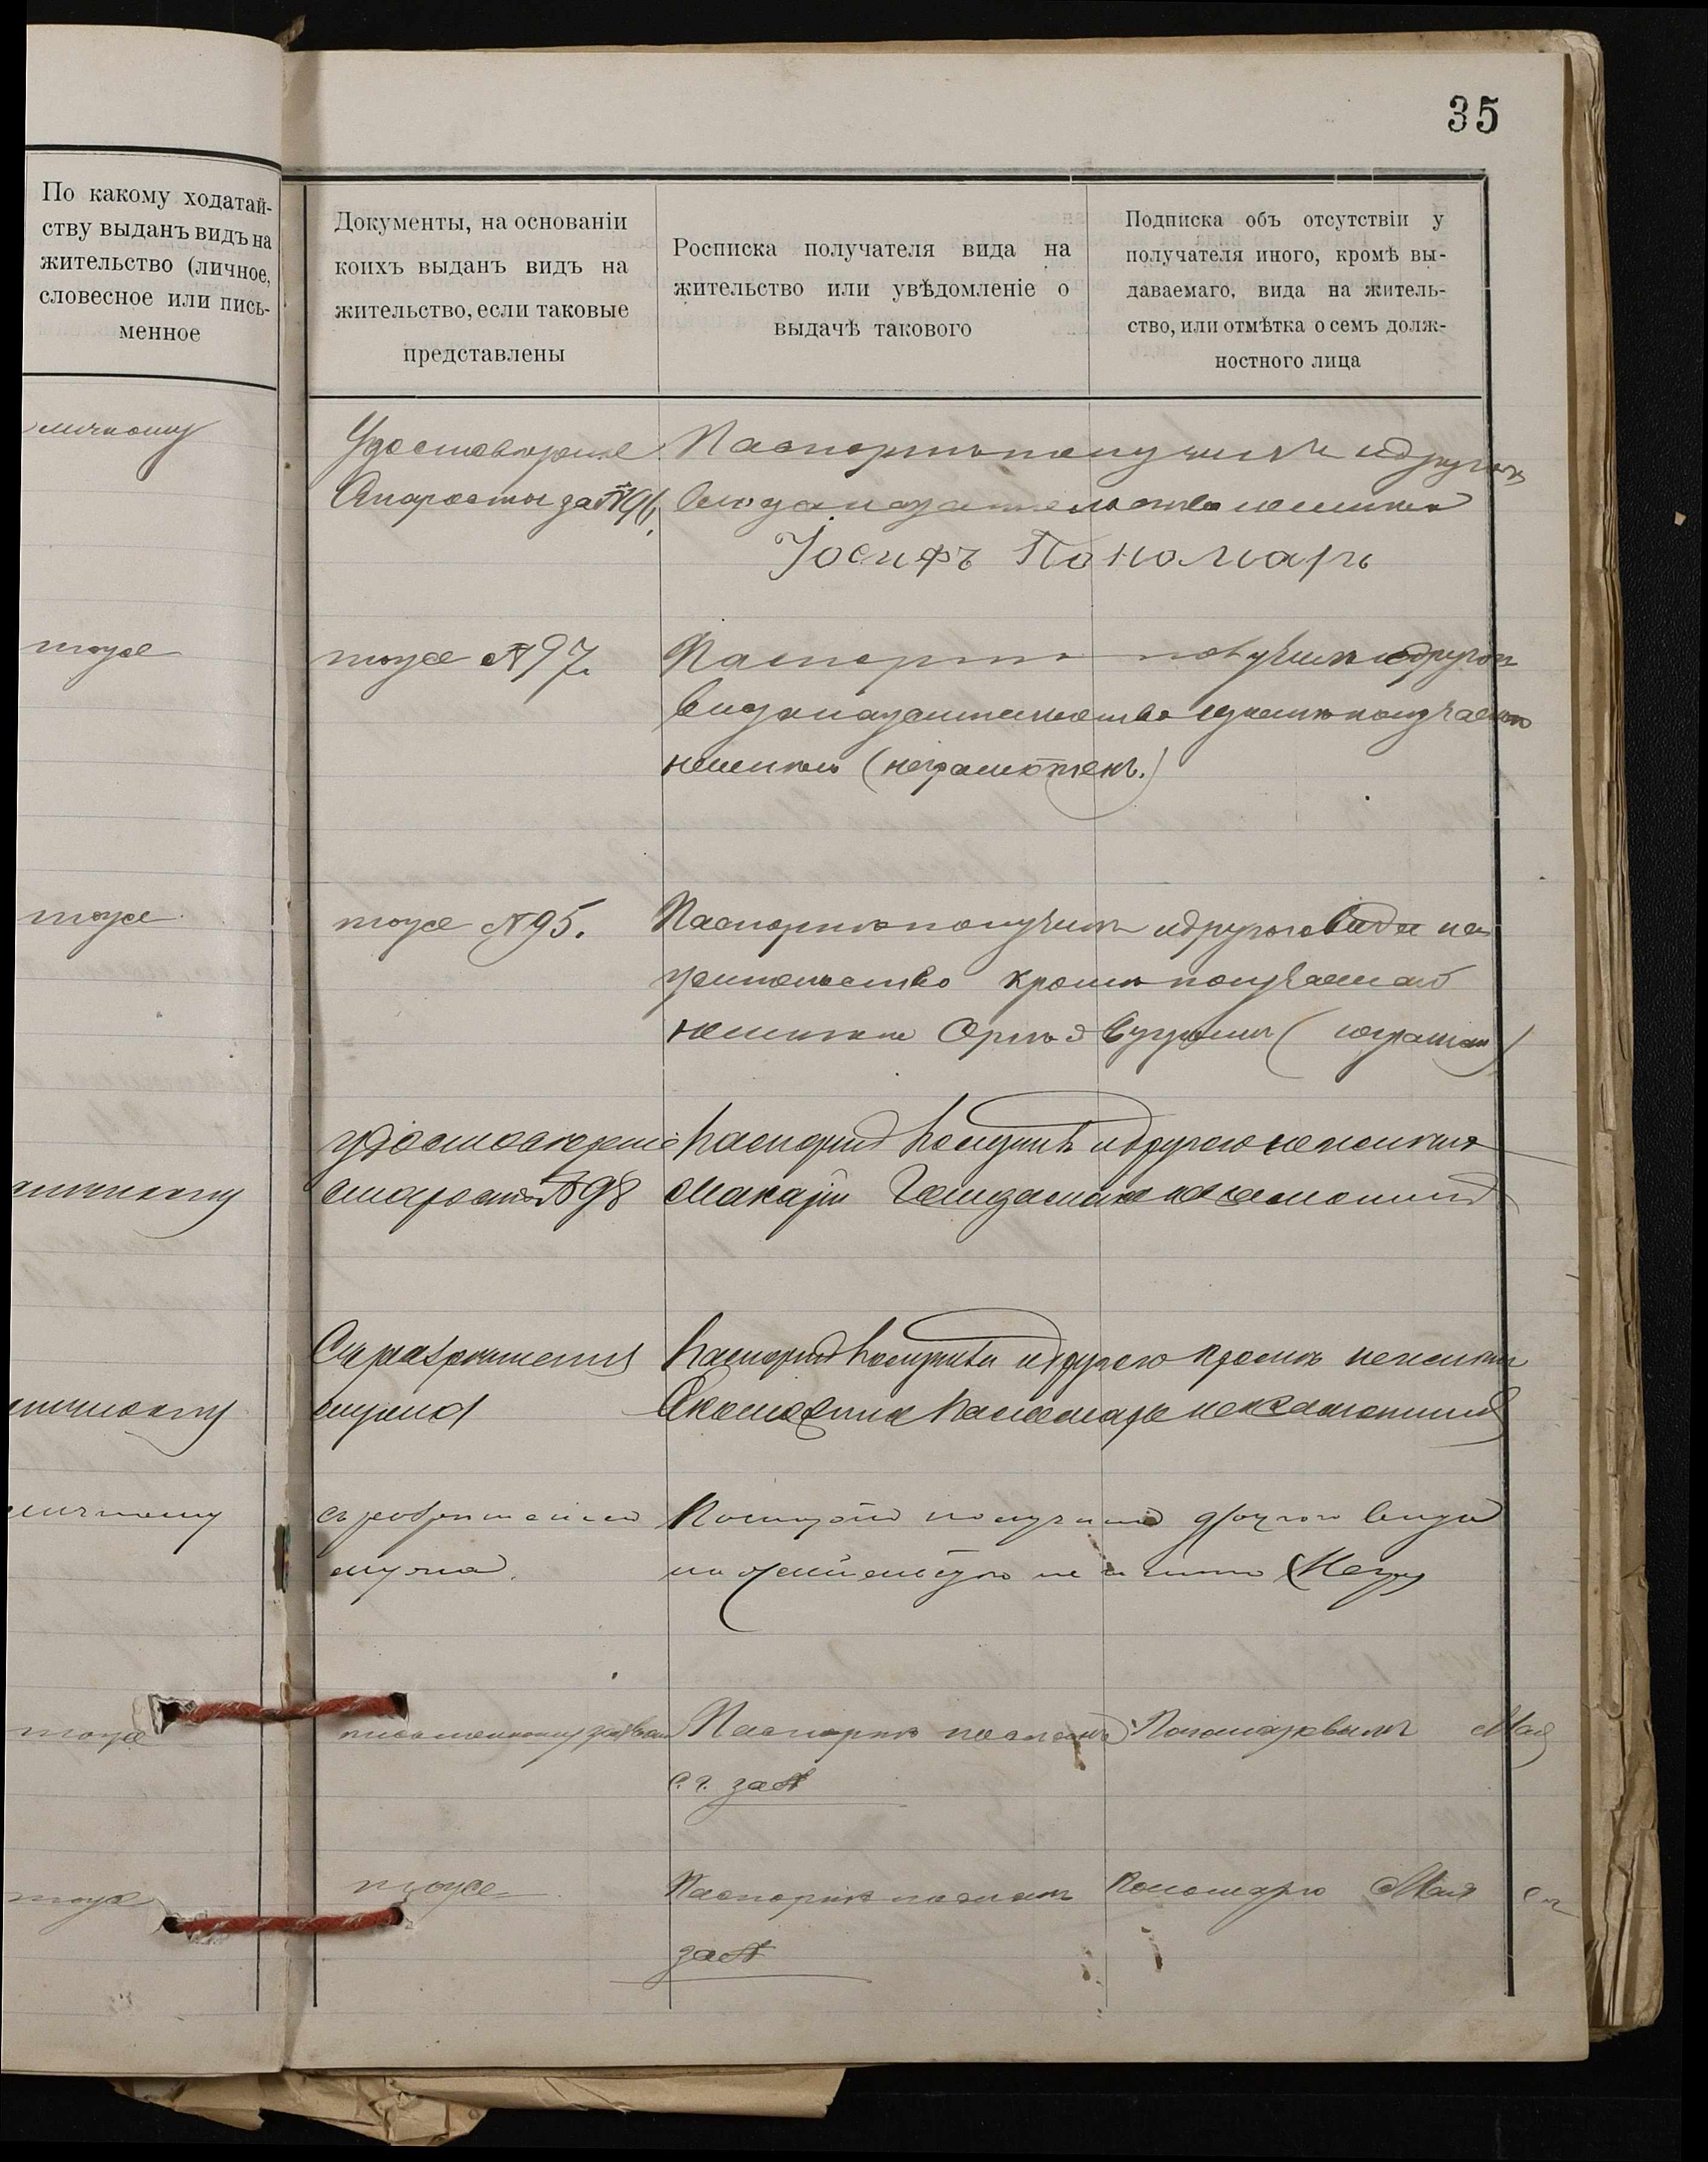 35
По какому ходатай-
ству выданъ видъ на
жительство (личное,
словесное или пись-
менное
Документы, на основаніи
коихъ выданъ видъ на
жительство, если таковые
представлены
Росписка получателя вида на
жительство или увѣдомленіе о
выдачѣ такового
Подписка объ отсутствіи у
получателя иного, кромѣ вы-
даваемаго, вида на житель-
ство, или отмѣтка о семъ долж-
ностного лица
личному
Удостовѣреніе
Старосты за № 96
Паспортъ получилъ и другого
вида на жительство не имѣю
Іосифъ Пономарь
тоже
тоже № 97.
Паспортъ получилъ и другого
вида на жительство кромѣ получаемаго
не имѣю (неграмотенъ.)
тоже
тоже № 95.
Паспортъ получилъ и другого вида на
жительство кромѣ получаемаго
не имѣю
личному
удостовѣреніе
старосты № 98
паспортъ получилъ и другого не имѣю
Макарій
личному
Съ разрѣшенія
мужа
паспортъ получила и другого кромѣ не имѣю
Пономарь
личному
съ разрѣшенія
мужа.
Паспортъ получила другого вида
на жительство не имѣю
тоже
письменному
Паспортъ посланъ Мая
с. г. за №
тоже
тоже
Паспортъ посланъ Пономарю Мая с г
за №